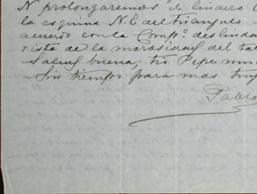 N prolongaremos el lindero
la esquina N.E. del triangulo
acuerdo con la Compª deslinda
vista de la morosidad del
Salud buena; tio Pepe
Sin tiempo para mas
Pablo